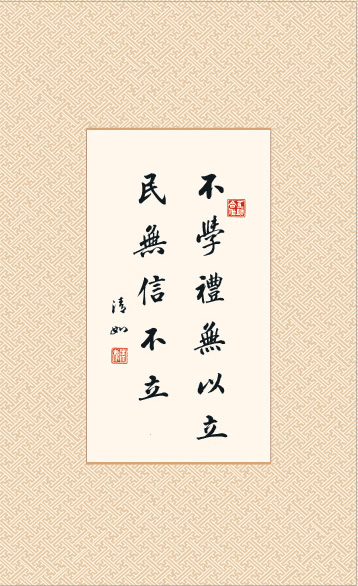 不學禮無以立
民無信不立
清如